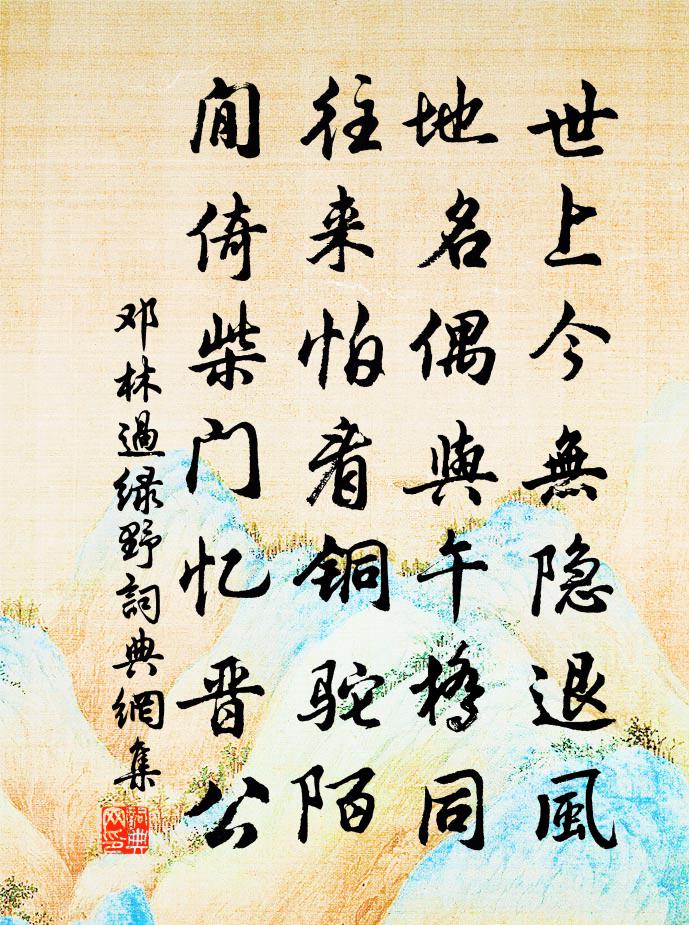 世上今無隐退風
地名偶與午橋同
往来怕看铜駝陌
閒倚柴门忆晋公
邓林過绿野詞典網集
詞典網印